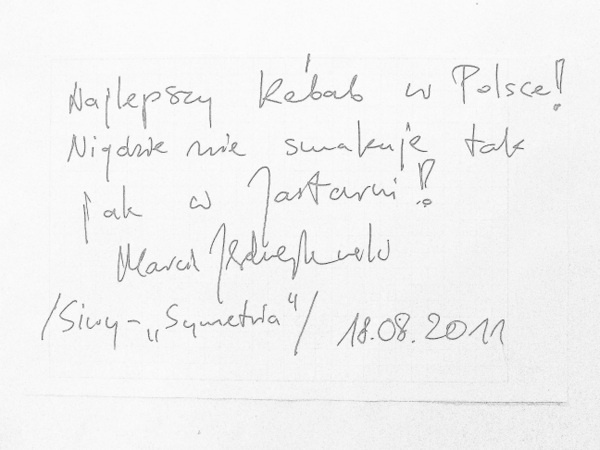 Najlepszy kebab w Polsce!
Nigdzie nie smakuje tak
jak w Jastarni!
Marcin
/Siwy - „Symetria"/ 18.08.2011